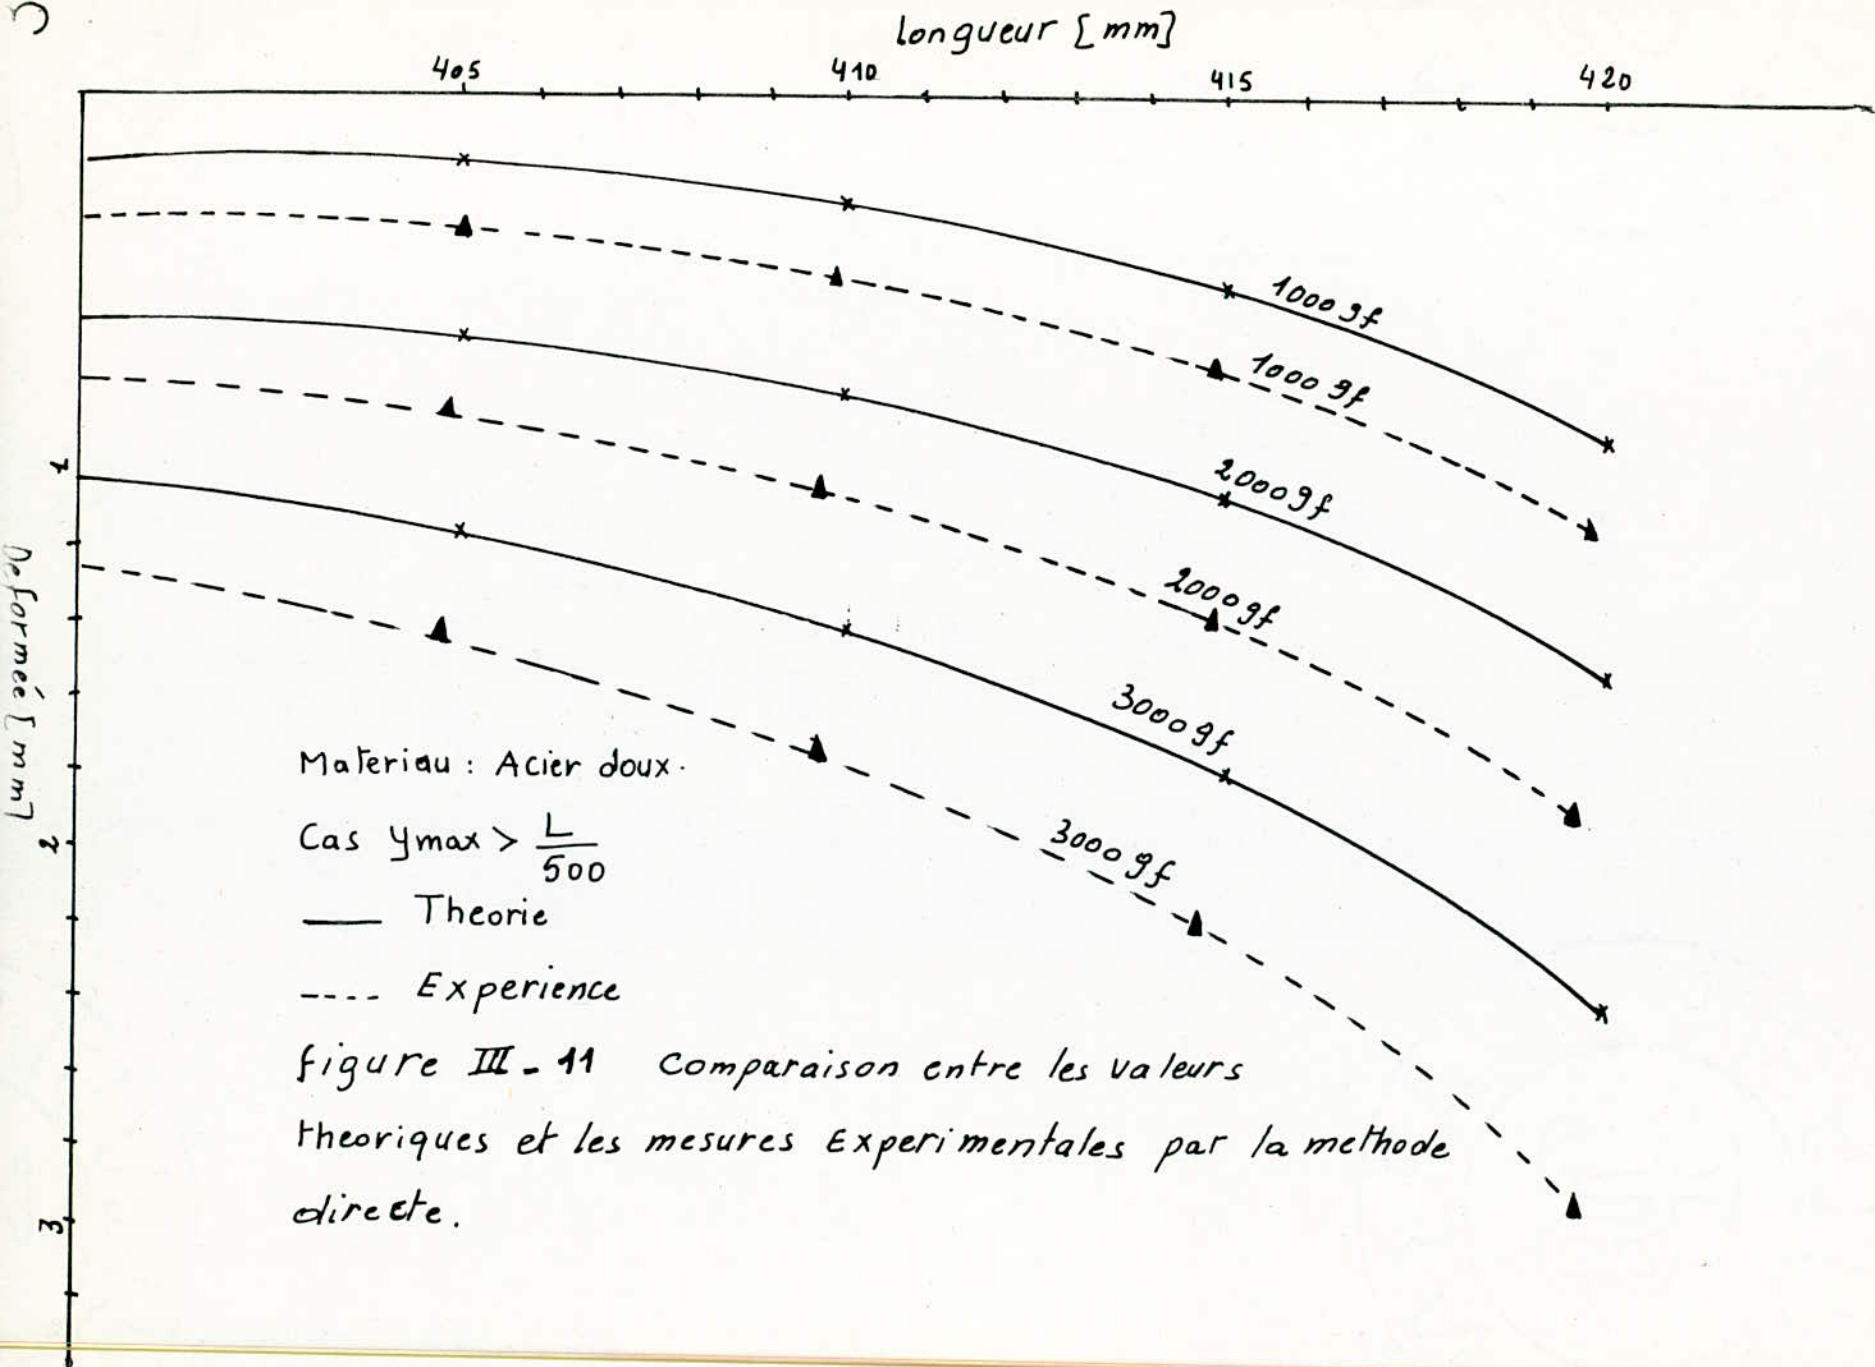 longueur [mm]
405 410 415 420
1000 gf
1000 gf
2000 gf
1
2000 gf
Deformeé [mm]
3000 gf
Materiau : Acier doux.
3000 gf
Cas ymax > L/500
2
Theorie
Experience
figure III - 11 Comparaison entre les valeurs
theoriques et les mesures Experimentales par la methode
directe.
3